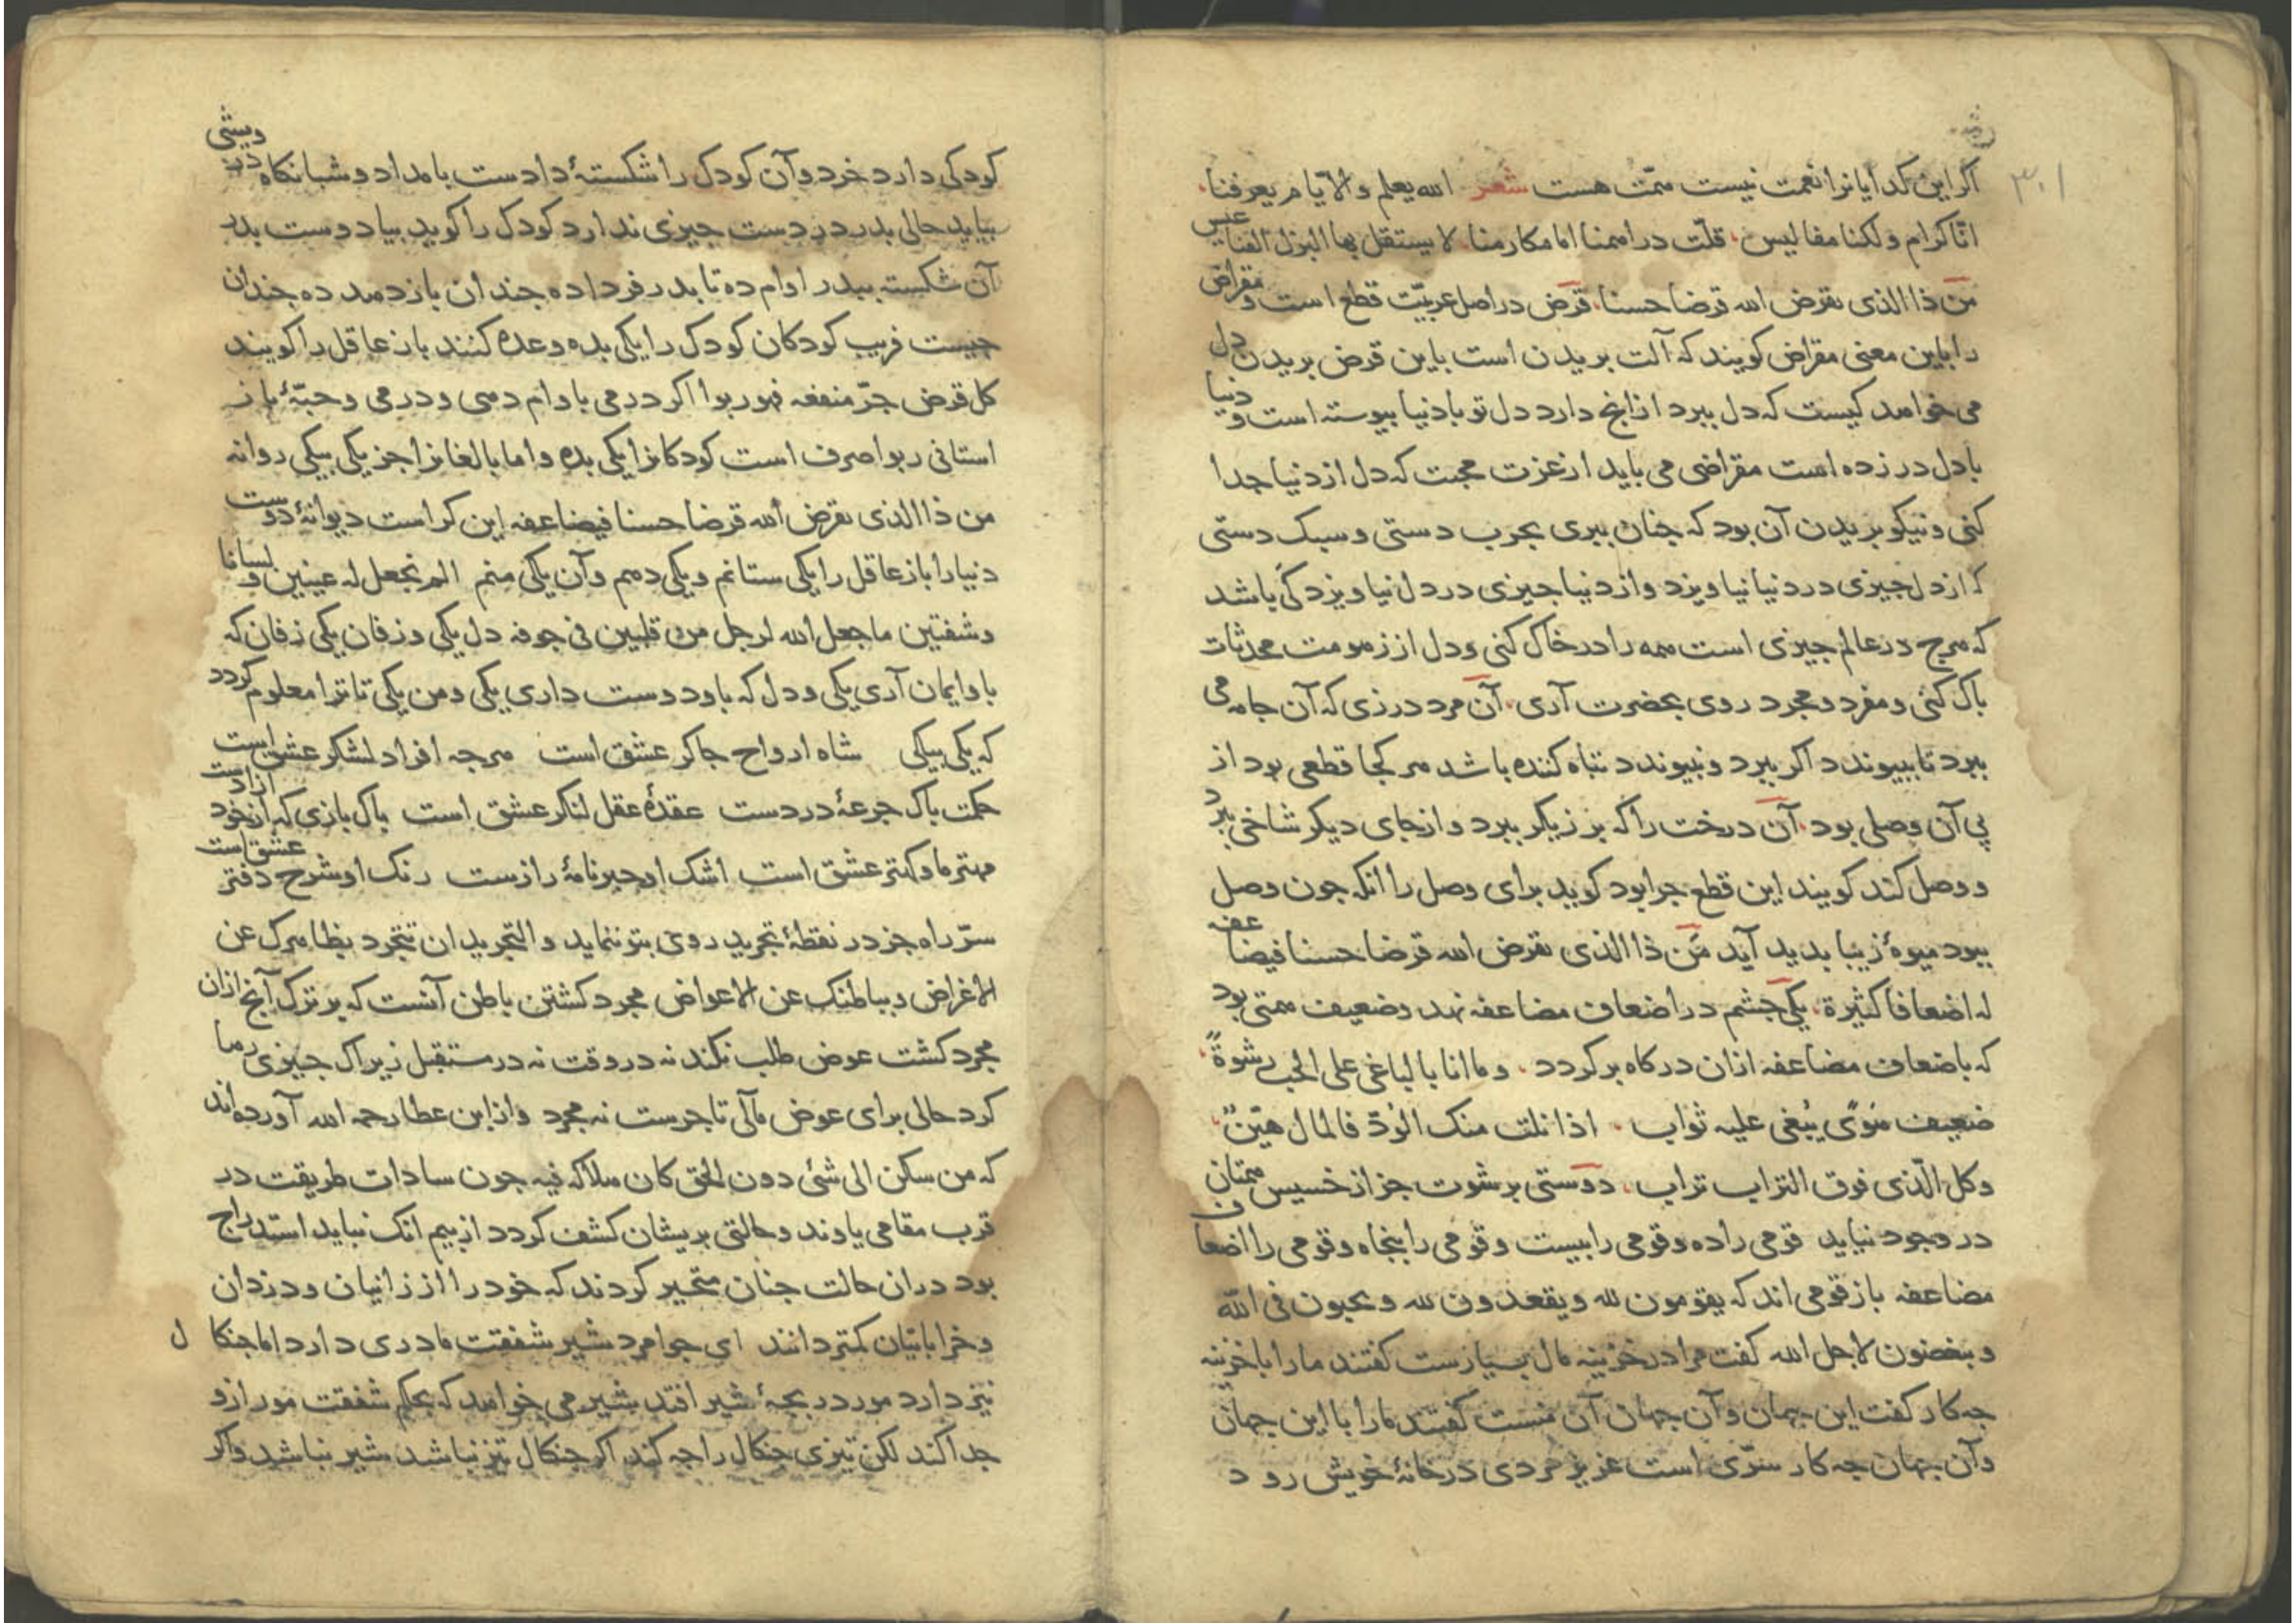 ۳۰۱
اکر این کدایانرا نعمت نیست همّت هست شعر الله یعلم والایّام یعرفنا
انّا کرام ولکنا مفالیس قلّت دراهمنا اما مکارمنا لا یستقل بها البزل القناعیس
من ذا الذی یقرض الله قرضا حسنا قرض در اصل عربیّت قطع است و مقراض
را باین معنی مقراض کویند که آلت بریدن است باین قرض بریدن دل
می خواهد کیست که دل ببرد از انج دارد دل تو با دنیا بیوسته است و دنیا
با دل در زده است مقراضی می باید از عزت محبت که دل از دنیا جدا
کنی و نیکو بریدن آن بود که جنان ببری بجرب دستی و سبک دستی
که از دل جیزی در دنیا نیاویزد و از دنیا جیزی در دل نیاویزد کی باشد
که هرج در عالم جیزی است همه را در خاک کنی و دل از زهومت محدثات
باک کنی و مفرد و مجرد روی بحضرت آری آن مرد درزی که آن جامه می
ببرد تا بپیوندد اکر ببرد و نبیوندد تباه کننده باشد هر کجا قطعی بود از
پی آن وصلی بود آن درخت را که برزیکر ببرد و از جای دیکر شاخی ببرد
و وصل کند کویند این قطع جرا بود کوید برای وصل را انکه جون وصل
ببود میوۀ زیبا بدید آید من ذا الذی یقرض الله قرضا حسنا فیضاعفه
له اضعافا کثیرة یکی جشم در اضعاف مضاعفه نهد و ضعیف همتی بود
که باضعاف مضاعفه ازان درکاه برکردد وما انا بالباغی علی الحب رشوةً
ضعیف هَوًی یُبغی علیه ثواب اذا نلت منک الوُدّ فالمال هیّنٌ
وکل الّذی فوق التراب تراب دوستی برشوت جز از خسیس همتان
در وجود نیاید قومی را ده و قومی را بیست و قومی را بنجاه و قومی را اضعاف
مضاعفه باز قومی اند که یقومون لله و یقعدون لله و یحبون فی الله
و یبغضون لاجل الله کفت مرا در خزینه مال بسیارست کفتند ما را با خزینه
جه کار کفت این جهان و آن جهان آن منست کفتند ما را با این جهان
و آن جهان جه کار سرّی است عزیز مردی در خانۀ خویش رود
کودکی دارد خرد و آن کودک را شکستۀ دادست بامداد و شبانکاه درویشی
بیاید حالی بدر در دست جیزی ندارد کودک را کوید بیا دوست بدر
آن شکسته ببدر اوام ده تا بدر فردا ده جندان باز دهد ده جندان
جیست فریب کودکان کودک را یکی بده وعده کنند باز عاقل را کویند
کل قرض جرّ منفعه فهو ربوا اکر درمی باوام دهی و درمی و حبّۀ باز
استانی ربوا صرف است کودکانرا یکی بده و اما بالغانرا جز یکی بیکی روا نه
من ذا الذی یقرض الله قرضا حسنا فیضاعفه این کراست دیوانۀ دوست
دنیا را باز عاقل را یکی ستانم و یکی دهم و آن یکی منم الم نجعل له عینین و لسانا
و شفتین ما جعل الله لرجل من قلبین فی جوفه دل یکی و زفان یکی زفان که
باو ایمان آری یکی و دل که باو دوست داری یکی و من یکی تا ترا معلوم کردد
که یکی بیکی شاه ارواح جاکر عشق است هرجه افراد لشکر عشق است
حکمت باک جرعۀ دردست عقدۀ عقل لنکر عشق است باک بازی که از خود آزادست
مهتر ما و کهتر عشق است اشک او حبر نامۀ رازست رنک او شرح دفتر عشق است
سرّ راه جز در نقطۀ تجرید روی بتو ننماید و التجرید ان تتجرد بظاهرک عن
الاغراض و بباطنک عن الاعواض مجرد کشتن باطن آنست که بر ترک آنج ازان
مجرد کشت عوض طلب نکند نه در وقت نه در مستقبل زیرا ک جیزی رها
کرد حالی برای عوض مآلی تاجرست نه مجرد و از ابن عطا رحمه الله آورده اند
که من سکن الی شئ دون الحق کان هلاکه فیه جون سادات طریقت در
قرب مقامی یاوند و حالتی بریشان کشف کردد از بیم انک نباید استدراج
بود دران حالت جنان متحیر کردند که خود را از زانیان و دزدان
و خراباتیان کمتر دانند ای جوامرد شیر شفقت مادری دارد اما جنکال
نیز دارد مور در بجۀ شیر افتد شیر می خواهد که بحکم شفقت مور ازو
جدا کند لکن تیزی جنکال را جه کند اکر جنکال تیز نباشد شیر نباشد و اکر